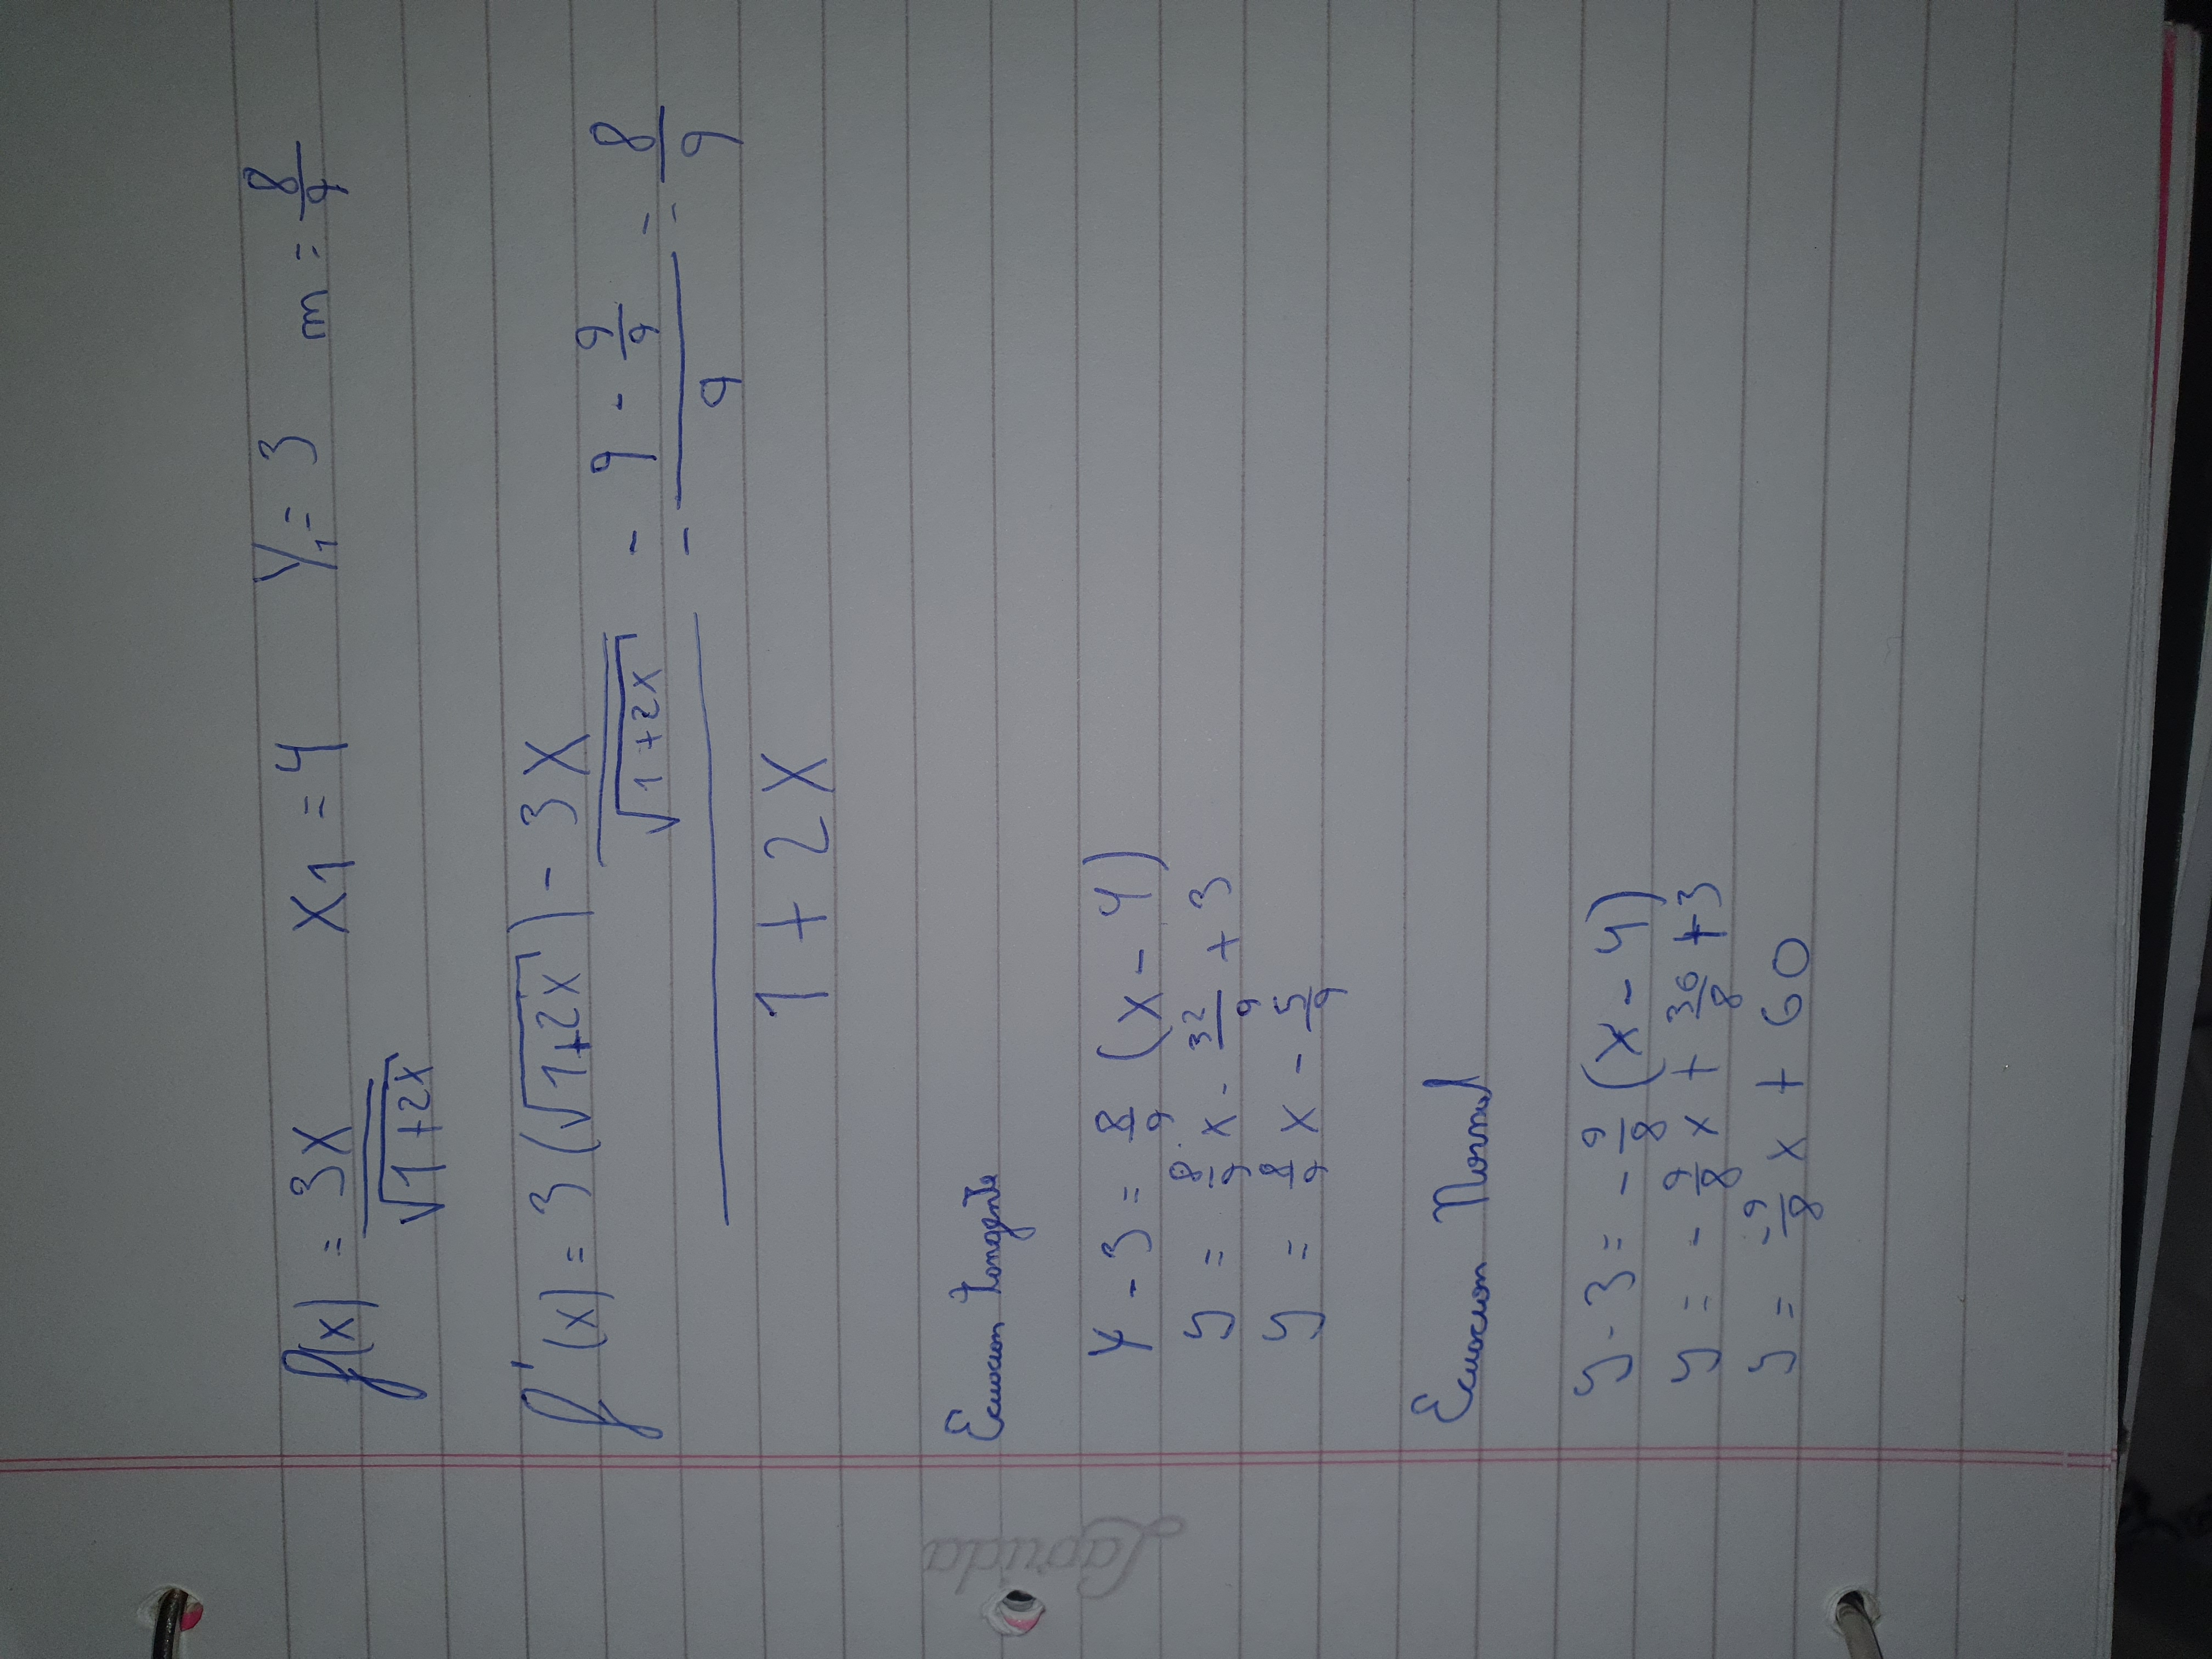 f(x) = 3x / √(1+2x)    X₁ = 4    Y₁ = 3    m = 8/9
f'(x) = (3(√(1+2x)) - 3x/√(1+2x)) / (1 + 2x) = (9 - 9/9) / 9 = 8/9
Laprida
Ecuacion tangente
Y - 3 = 8/9 (x - 4)
y = 8/9 x - 32/9 + 3
y = 8/9 x - 5/9
Ecuacion Normal
y - 3 = - 9/8 (x - 4)
y = - 9/8 x + 36/8 + 3
y = -9/8 x + 60